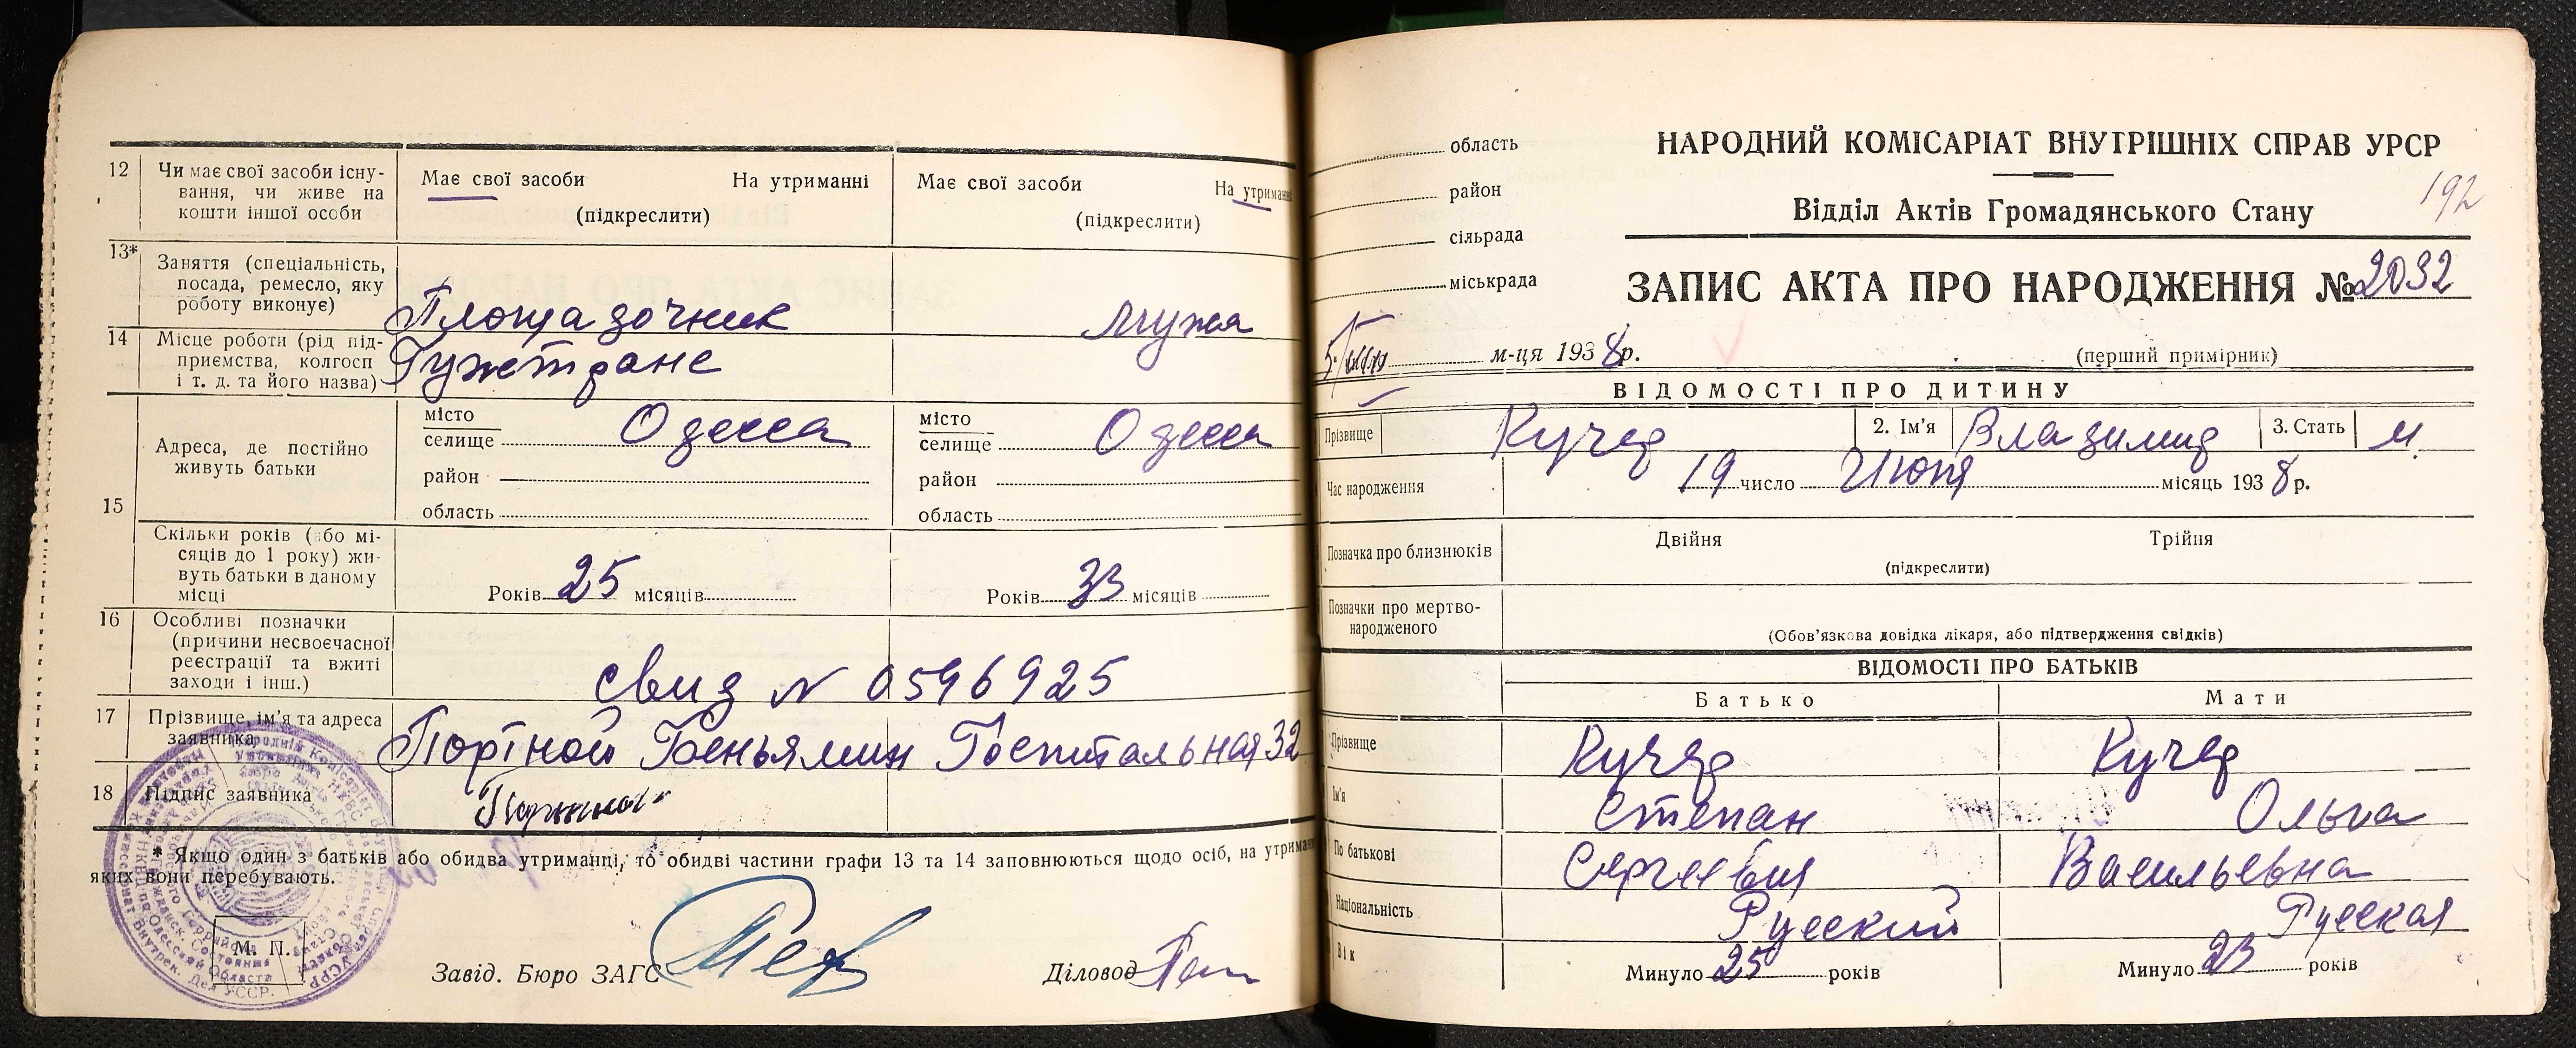 12 Чи має свої засоби існування, чи живе на кошти іншої особи
Має свої засоби На утриманні
(підкреслити)
Має свої засоби На утриманні
(підкреслити)
13* Заняття (спеціальність, посада, ремесло, яку роботу виконує)
Площадочник мужа
14 Місце роботи (рід підприємства, колгосп і т. д. та його назва)
Гужтранс
15 Адреса, де постійно живуть батьки
місто
селище Одесса
район
область
місто
селище Одесса
район
область
Скільки років (або місяців до 1 року) живуть батьки в даному місці
Років 25 місяців
Років місяців
16 Особливі позначки (причини несвоєчасної реєстрації та вжиті заходи і інш.)
Свид N 0596925
17 Прізвище, ім'я та адреса заявника
Портной Беньямин Госпитальная 32
18 Підпис заявника
* Якщо один з батьків або обидва утриманці, то обидві частини графи 13 та 14 заповнюються щодо осіб, на утриманні
яких вони перебувають.
М. П.
Завід. Бюро ЗАГС
Діловод
область
район
сільрада
міськрада
НАРОДНИЙ КОМІСАРІАТ ВНУТРІШНІХ СПРАВ УРСР
192
Відділ Актів Громадянського Стану
ЗАПИС АКТА ПРО НАРОДЖЕННЯ № 2032
м-ця 1938 р.
(перший примірник)
ВІДОМОСТІ ПРО ДИТИНУ
Прізвище Кучер 2. Ім'я Владимир 3. Стать М.
Час народження 19 число Июня місяць 1938 р.
Позначка про близнюків Двійня Трійня
(підкреслити)
Позначки про мертвонародженого
(Обов'язкова довідка лікаря, або підтвердження свідків)
ВІДОМОСТІ ПРО БАТЬКІВ
Батько Мати
Прізвище Кучер Кучер
Ім'я Степан Ольга
По батькові Сергеевич Васильевна
Національність Русский Русская
Вік Минуло 25 років Минуло 23 років